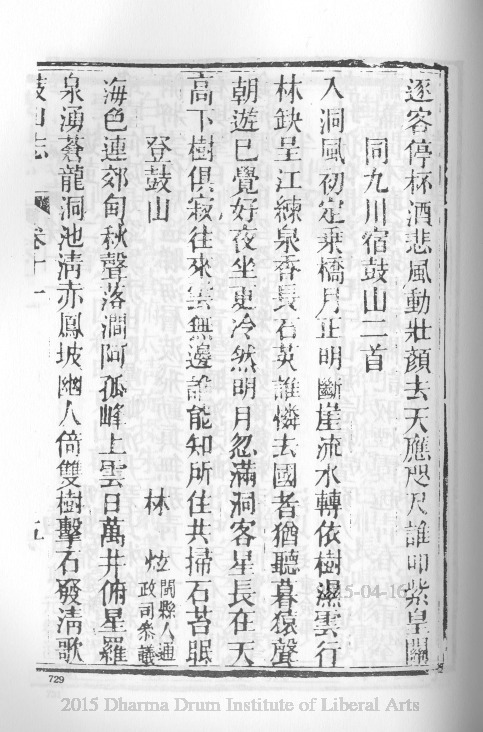 逐客停杯酒悲風動壯顏去天應咫尺誰叩紫皇關
同九川宿鼓山二首
入洞風初定乘橋月正明斷崖流水轉依樹濕雲行
林缺呈江練泉香長石英誰憐去國者猶聽暮猿聲
朝遊已覺好夜坐更泠然明月忽滿洞客星長在天
高下樹俱寂往來雲無邊誰能知所住共掃石苔眠
登鼓山 林 㶿 閩縣人通政司叅議
海色連郊甸秋聲落澗阿孤峰上雲日萬井俯星羅
泉湧蒼龍洞池清赤鳳坡幽人倚雙樹擊石發清歌
鼓山志 卷十一 五
729
2015-04-16
2015 Dharma Drum Institute of Liberal Arts